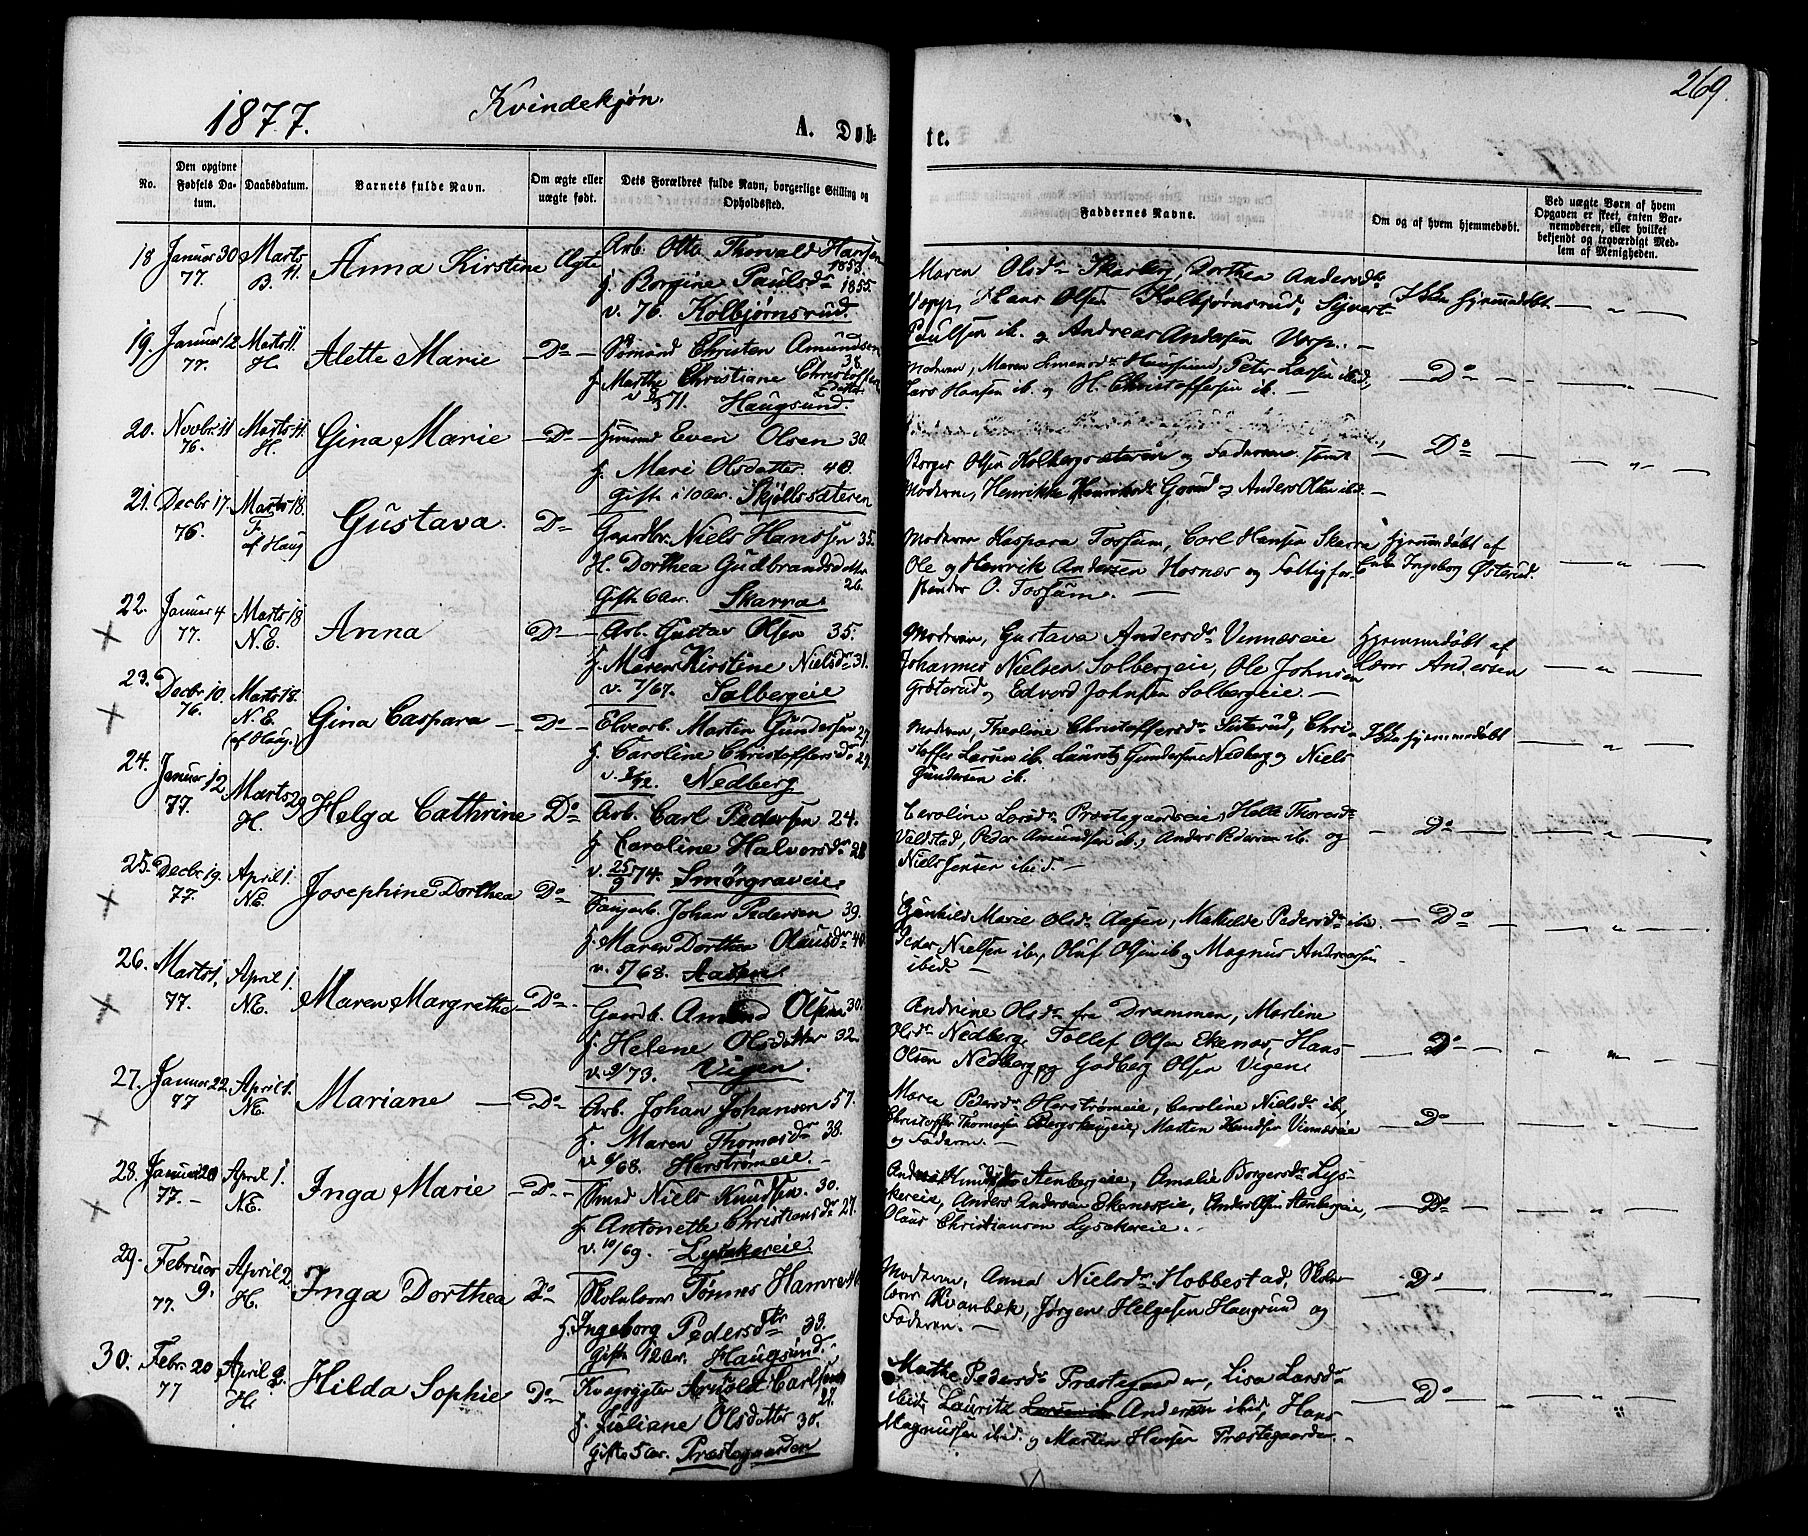 1877. Kvindekjøn. 269.
A. Døb-
te.
No.
Den opgivne Fødsels Da-tum.
Daabsdatum.
Barnets fulde Navn.
Om ægte eller uægte født.
Dets Forældres fulde Navn, borgerlige Stilling og Opholdssted.
Faddernes Navne.
Om og af hvem hjemmedøbt.
Ved uægte Børn af hvem Opgaven er skeet, enten Bar-nemoderen, eller hvilket bekjendt og troværdigt Med-lem af Menigheden.
18 Januar 30 77. Marts 11. B. Anna Kirstine Ægte
Arb. Otto Thorvald Hansen 1853.
f. Borgine Paulsdr 1855.
v. 76. Kolbjørnsrud.
Maren Olsdr Skarberg, Dorthea Andersdr
Hans Olsen Kolbjørnsrud, Syvert
Paulsen ib. og Andreas Andersen
Ikke hjemmedøbt.
19. Januar 12 77. Marts 11. H. Alette Marie Do
Sømand Christen Amundsen 38
f. Marthe Christiane Christoffers datter
71. Haugsund.
Moderen, Maren Simensdr Haugsund, Peter Larsen ibid,
Lars Hansen ib. og H. Christoffersen ib.
Do
20. Novbr 11 76. Marts 11. H. Gina Marie Do
Even Olsen 30.
f. Mari Olsdatter 40.
gift i 10 Aar. Skjøllssæteren
Borger Olsen Holbergsæteren og Faderen samt
Do
21. Decbr 17. 76. Marts 18. F. af Haug Gustava. Do
Moderen, Henrikke Gorud og Anders Olsen ibid.
Gaardbr. Niels Hanssen 35.
H. Dorthea Gudbrandsdatter 26.
Gift 6 Aar. Skarra
Moderen Kaspara Fossum, Carl Hansen Skarra
Ole og Henrik Andersen Hornæs og
O. Fossum.
Hjemmedøbt af
Enke Ingeborg Østerud.
22. Januar 4 77. Marts 18 N.E. Anna Do
Arb. Gustav Olsen 35.
f. Maren Kirstine Nielsdr 31.
v. 7/67. Solbergeie
Moderen, Gustava Andersdr Vinnæseie
Johannes Nielsen Solbergeie, Ole Johnsen
Grøterud og Edvard Johnsen Solbergeie.
Hjemmedøbt af
Lærer Andersen
23. Decbr 10. 76. Marts 18. N.E. (af Haug.) Gina Caspara Do
Elvearb. Martin Gundersen 27
f. Caroline Christoffersdr 29
v. 72. Nedberg
Moderen, Theoline Christoffersdr Seterud, Chri-
stoffer Larsen ib. Lauritz Gundersen Nedberg og Niels
Gundersen ib.
Ikke hjemmedøbt
24. Januar 12 77. Marts 29 H. Helga Cathrine Do
Arb. Carl Pedersen 24.
f. Caroline Halvorsdr 28
v. 25/9 74. Smørgraveie
Caroline Larsdr Præstegaardseie, Helle Thoresdr
Valdstad, Peder Amundsen ib., Anders Pedersen ib. og
Niels Jensen ibid.
Do
25. Decbr 19. 77. April 1. NE. Josephine Dorthea Do
Johan Pedersen 39.
f. Maren Dorthea Olausdr 40
v. 5/68. Aasen.
Gunhild Marie Olsdr Aasen, Mathilde Pedersdr ib.
Peder Nielsen ib., Oluf Olsen ib og Magnus Andreassen
ibid.
Do
26. Marts 1, 77. April 1. N.E. Maren Margrethe Do
Gaardb. Amund Olsen 30.
f. Helene Olsdatter 32.
v. 9/73. Vigen.
Andrine Olsdr fra Drammen, Marline
Olsdr Nedberg, Tollef Olsen Ekenæs, Hans
Olsen Nedberg og Godberg Olsen Vigen.
Do
27. Januar 22. 77 April 1. NE. Mariane Do
Arb. Johan Johansen 57.
f. Maren Thomasdr 38.
v. 9/68. Herstrømeie.
Maren Pedersdr Herstrømeie, Caroline Nielsdr ib,
Christoffer Thomassen Morten Knudsen Vinnæseie
og Faderen.
Do
28. Januar 20 77. April 1. NE. Inga Marie Do
Smed Niels Knudsen 30.
f. Antonette Christiansdr 27.
v. 10/69. Lysakereie
Stenbergeie, Amalie Borgersdr Lys-
akereie, Anders Andersen Ekenæseie, Anders Olsen Stenbergeie,
Olaus Christiansen Lysakereie.
Do
29. Februar 9. 77. April 2. H. Inga Dorthea Do
Skolelærer Tønnes Hamre
f. Ingeborg Pedersdtr 33.
Gift 12 Aar. Haugsund.
Moderen, Anna Nielsdr Hobbestad, Skole-
lærer Kvanbæk, Jørgen Helgesen Haugsund og
Faderen.
Do
30. Febr. 20 77 April 2. H. Hilda Sophie Do
Arnold Carlsen 27.
f. Juliane Olsdatter 30.
Gift 5 Aar. Præstegaarden
Mathe Pedersdr Præstegaarden, Lisa Larsdr
ibid, Lauritz Andersen ibid, Hans
Magnussen ibid. og Martin Hansen Præstegaarden.
Do